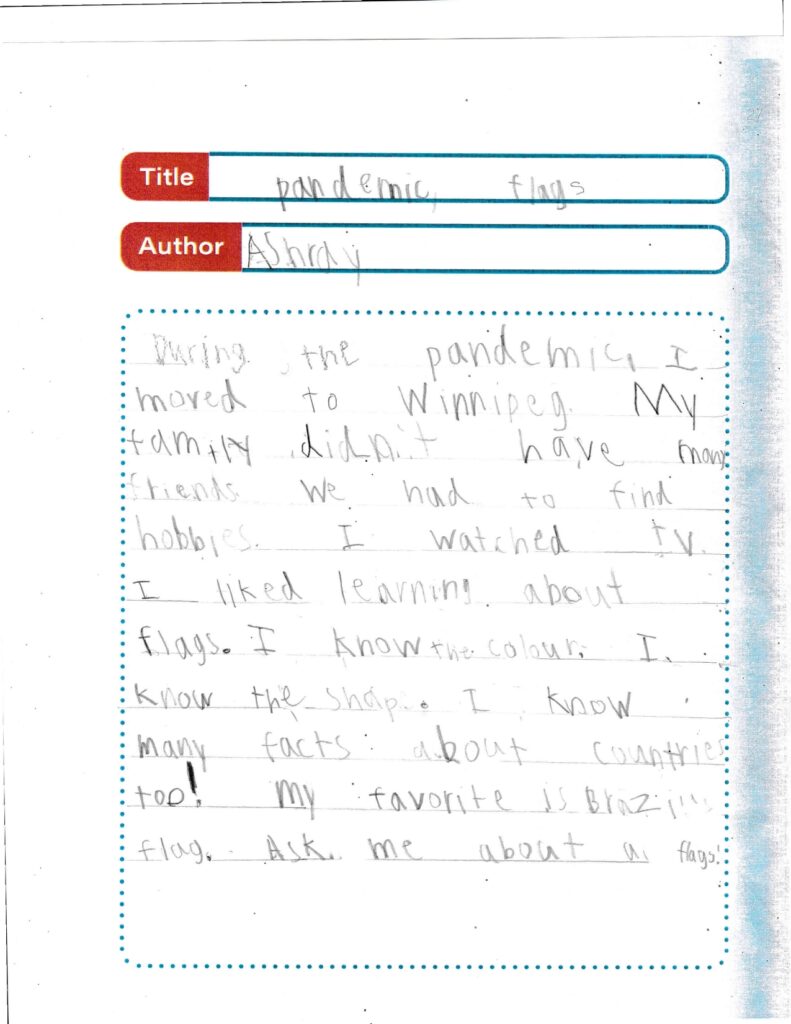 27
Title pandemic, flags
Author Ashray
During the pandemic, I
moved to Winnipeg. My
family didn't have many
friends. We had to find
hobbies. I watched tv.
I liked learning about
flags. I know the colour. I
know the shap. I know
many facts about countries
too! My favorite is Brazil's
flag. Ask me about a flags!